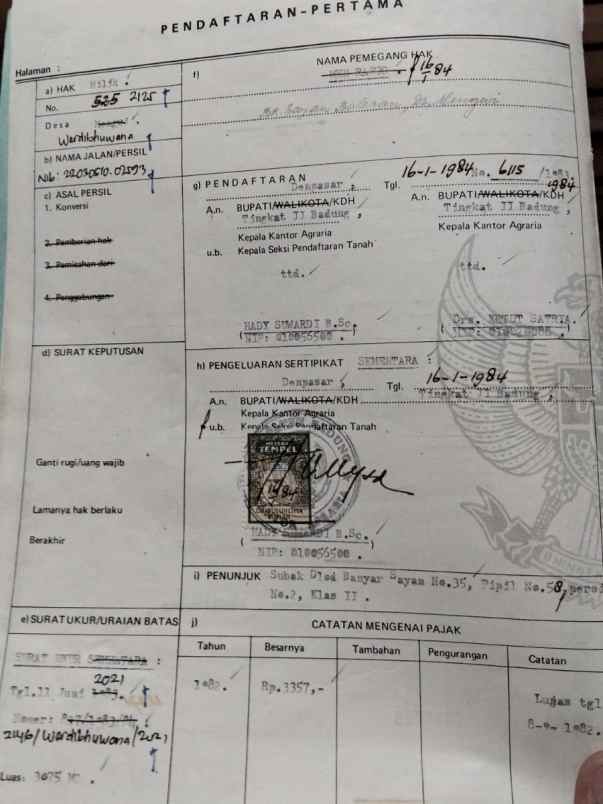 PENDAFTARAN-PERTAMA
Halaman :
a) HAK Milik .
No. 525 2125
Desa
Werdibhuwana
b) NAMA JALAN/PERSIL
NIB: 22030510.02593
c) ASAL PERSIL
1. Konversi
2. Pemberian hak
3. Pemisahan dari
4. Penggabungan
f) NAMA PEMEGANG HAK
16/1 84
g) PENDAFTARAN
Denpasar, Tgl. 16-1-1984 No. 6115 /1983.
1984
A.n. BUPATI/WALIKOTA/KDH
Tingkat II Badung,
Kepala Kantor Agraria
u.b. Kepala Seksi Pendaftaran Tanah
ttd.
(HADY SUWARDI B.Sc.)
NIP: 010056500.
A.n. BUPATI/WALIKOTA/KDH
Tingkat II Badung,
Kepala Kantor Agraria
ttd.
(Drs. KETUT SATRYA.)
d) SURAT KEPUTUSAN
Ganti rugi/uang wajib
Lamanya hak berlaku
Berakhir
h) PENGELUARAN SERTIPIKAT SEMENTARA :
Denpasar, Tgl. 16-1-1984
A.n. BUPATI/WALIKOTA/KDH Tingkat II Badung,
Kepala Kantor Agraria
u.b. Kepala Seksi Pendaftaran Tanah
TEMPEL
(HADY SUWARDI B.Sc.)
NIP: 010056500.
i) PENUNJUK Subak Dled Banyar Sayam No.35, Pipil No.58, persil
No.2, Klas II .
e) SURAT UKUR/URAIAN BATAS
SURAT UKUR SEMENTARA :
2021
Tgl.11 Juni 1983.
Nomer:
2146/Werdibhuwana/2021
Luas: 3075 M2 .
j) CATATAN MENGENAI PAJAK
Tahun Besarnya Tambahan Pengurangan Catatan
1982. Rp.3357,- Lugas tgl
8-9- 1982.